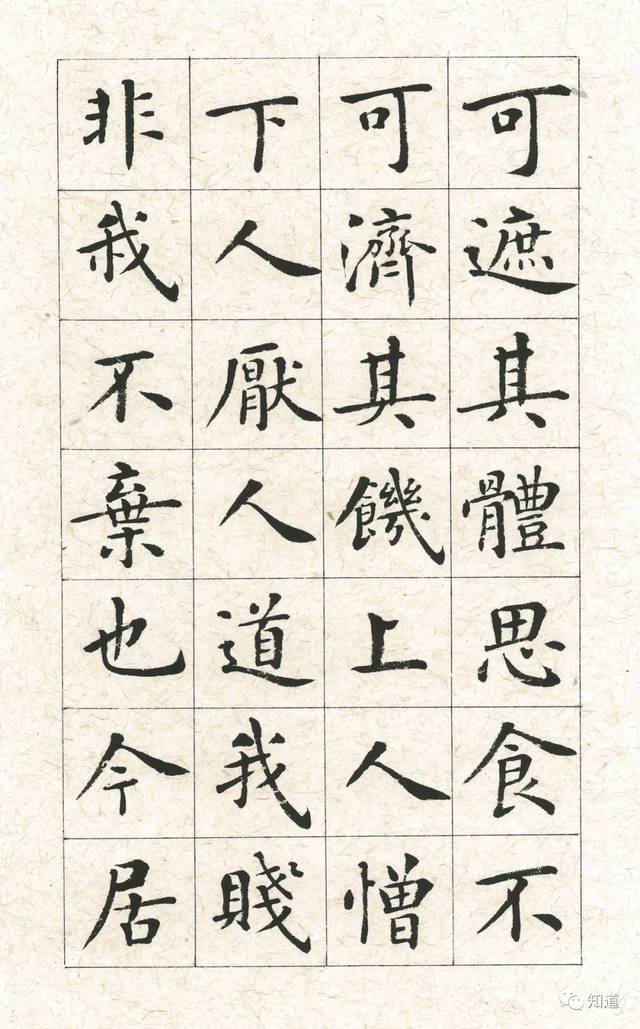 可遮其體思食不
可濟其饑上人憎
下人厭人道我賤
非我不棄也今居
知道